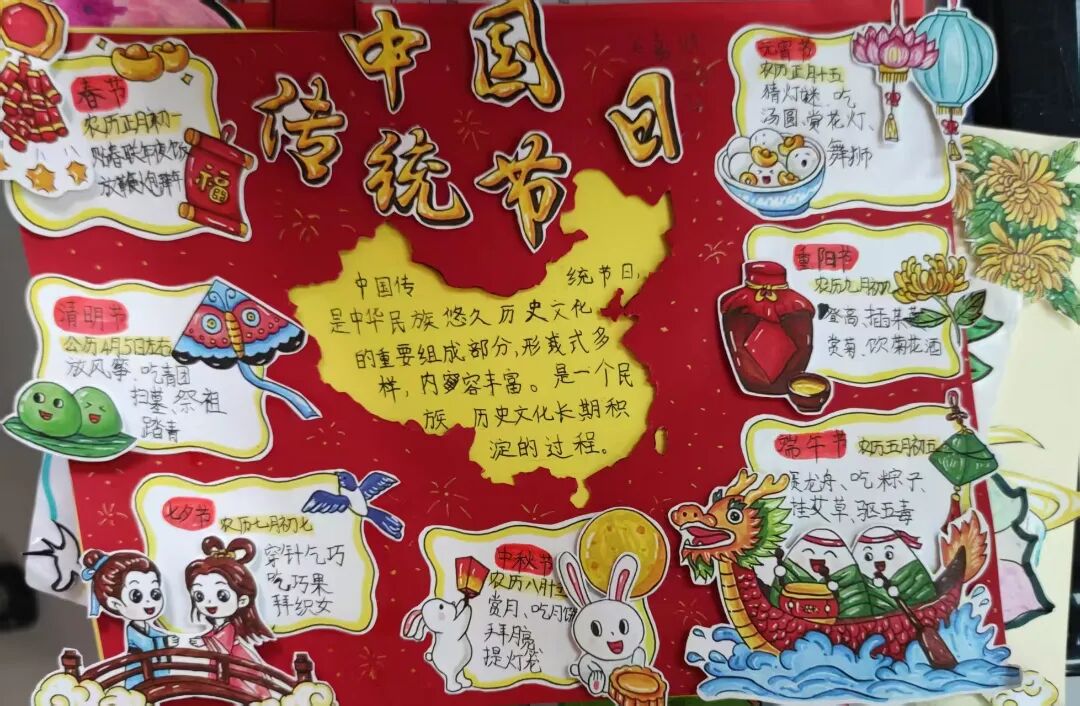 中国
传统节日
春节
农历正月初一
贴春联年夜饭
放鞭炮拜年
福
元宵节
农历正月十五
猜灯谜、吃
汤圆、赏花灯、
舞狮
清明节
公历4月5日左右
放风筝、吃青团
扫墓、祭祖
踏青
中国传 统节日,
是中华民族悠久历史文化
的重要组成部分,形式多
样,内容丰富。是一个民
族 历史文化长期积
淀的过程。
重阳节
农历九月初九
登高、插茱萸
赏菊、饮菊花酒
七夕节 农历七月初七
穿针乞巧
吃巧果
拜织女
中秋节
农历八月十五
赏月、吃月饼
拜月
提灯笼
端午节 农历五月初五
龙舟、吃粽子、
挂艾草、驱五毒